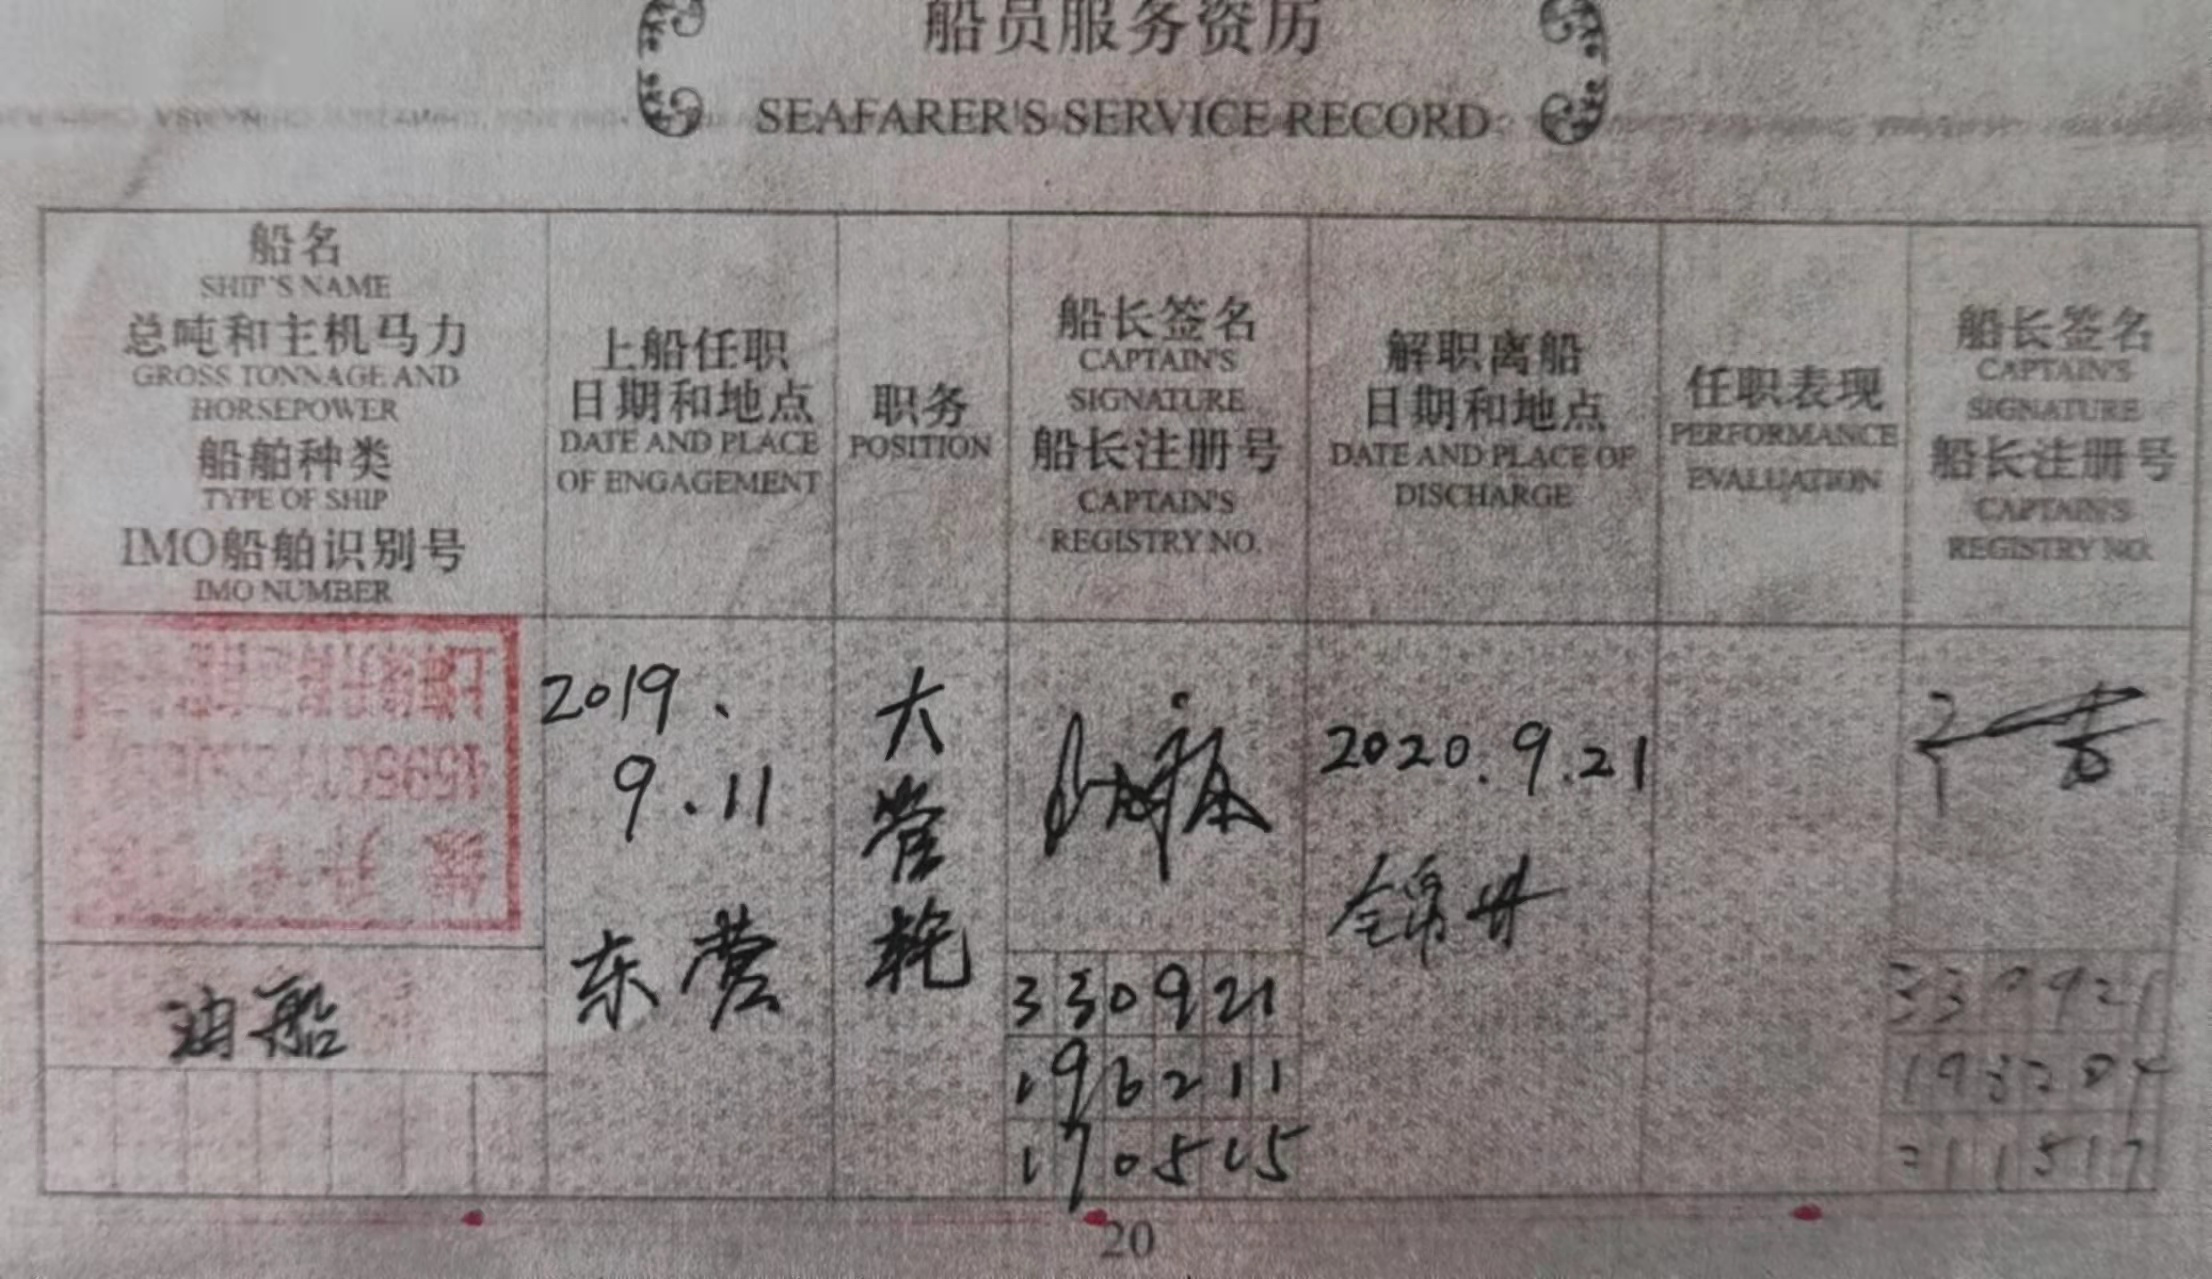 船员服务资历
SEAFARER'S SERVICE RECORD
船名
SHIP'S NAME
总吨和主机马力
GROSS TONNAGE AND
HORSEPOWER
船舶种类
TYPE OF SHIP
IMO船舶识别号
IMO NUMBER
上船任职
日期和地点
DATE AND PLACE
OF ENGAGEMENT
职务
POSITION
船长签名
CAPTAIN'S
SIGNATURE
船长注册号
CAPTAIN'S
REGISTRY NO.
解职离船
日期和地点
DATE AND PLACE OF
DISCHARGE
任职表现
PERFORMANCE
EVALUATION
船长签名
CAPTAIN'S
SIGNATURE
船长注册号
CAPTAIN'S
REGISTRY NO.
油船
2019.
9.11
东营
大
管
轮
330921
196211
170515
2020.9.21
锦州
330921
20